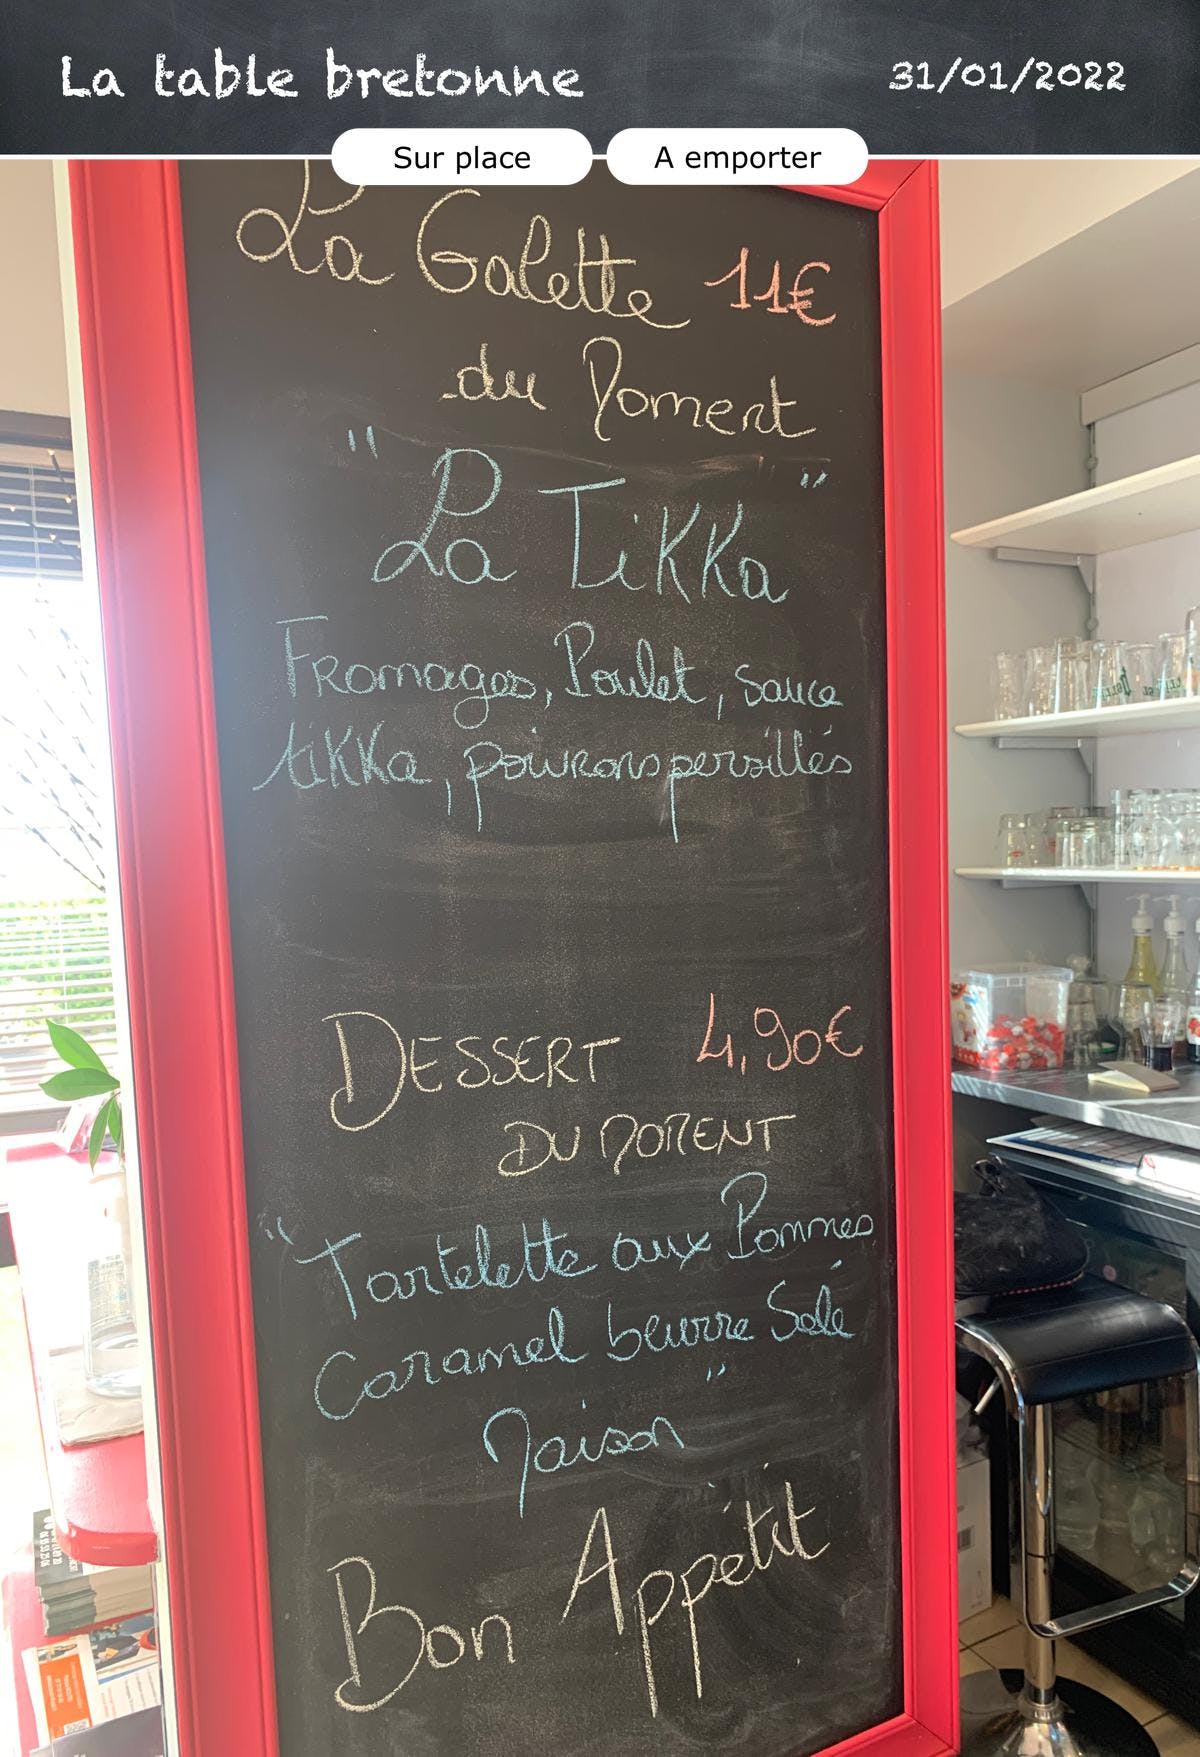 La table bretonne 31/01/2022
Sur place A emporter
La Galette 11€
du Moment
" La Tikka "
Fromages, Poulet, sauce
tikka, poivrons persillés
DESSERT 4,90€
DU MOMENT
"Tartelette aux Pommes
Caramel beurre Salé
Maison"
Bon Appétit